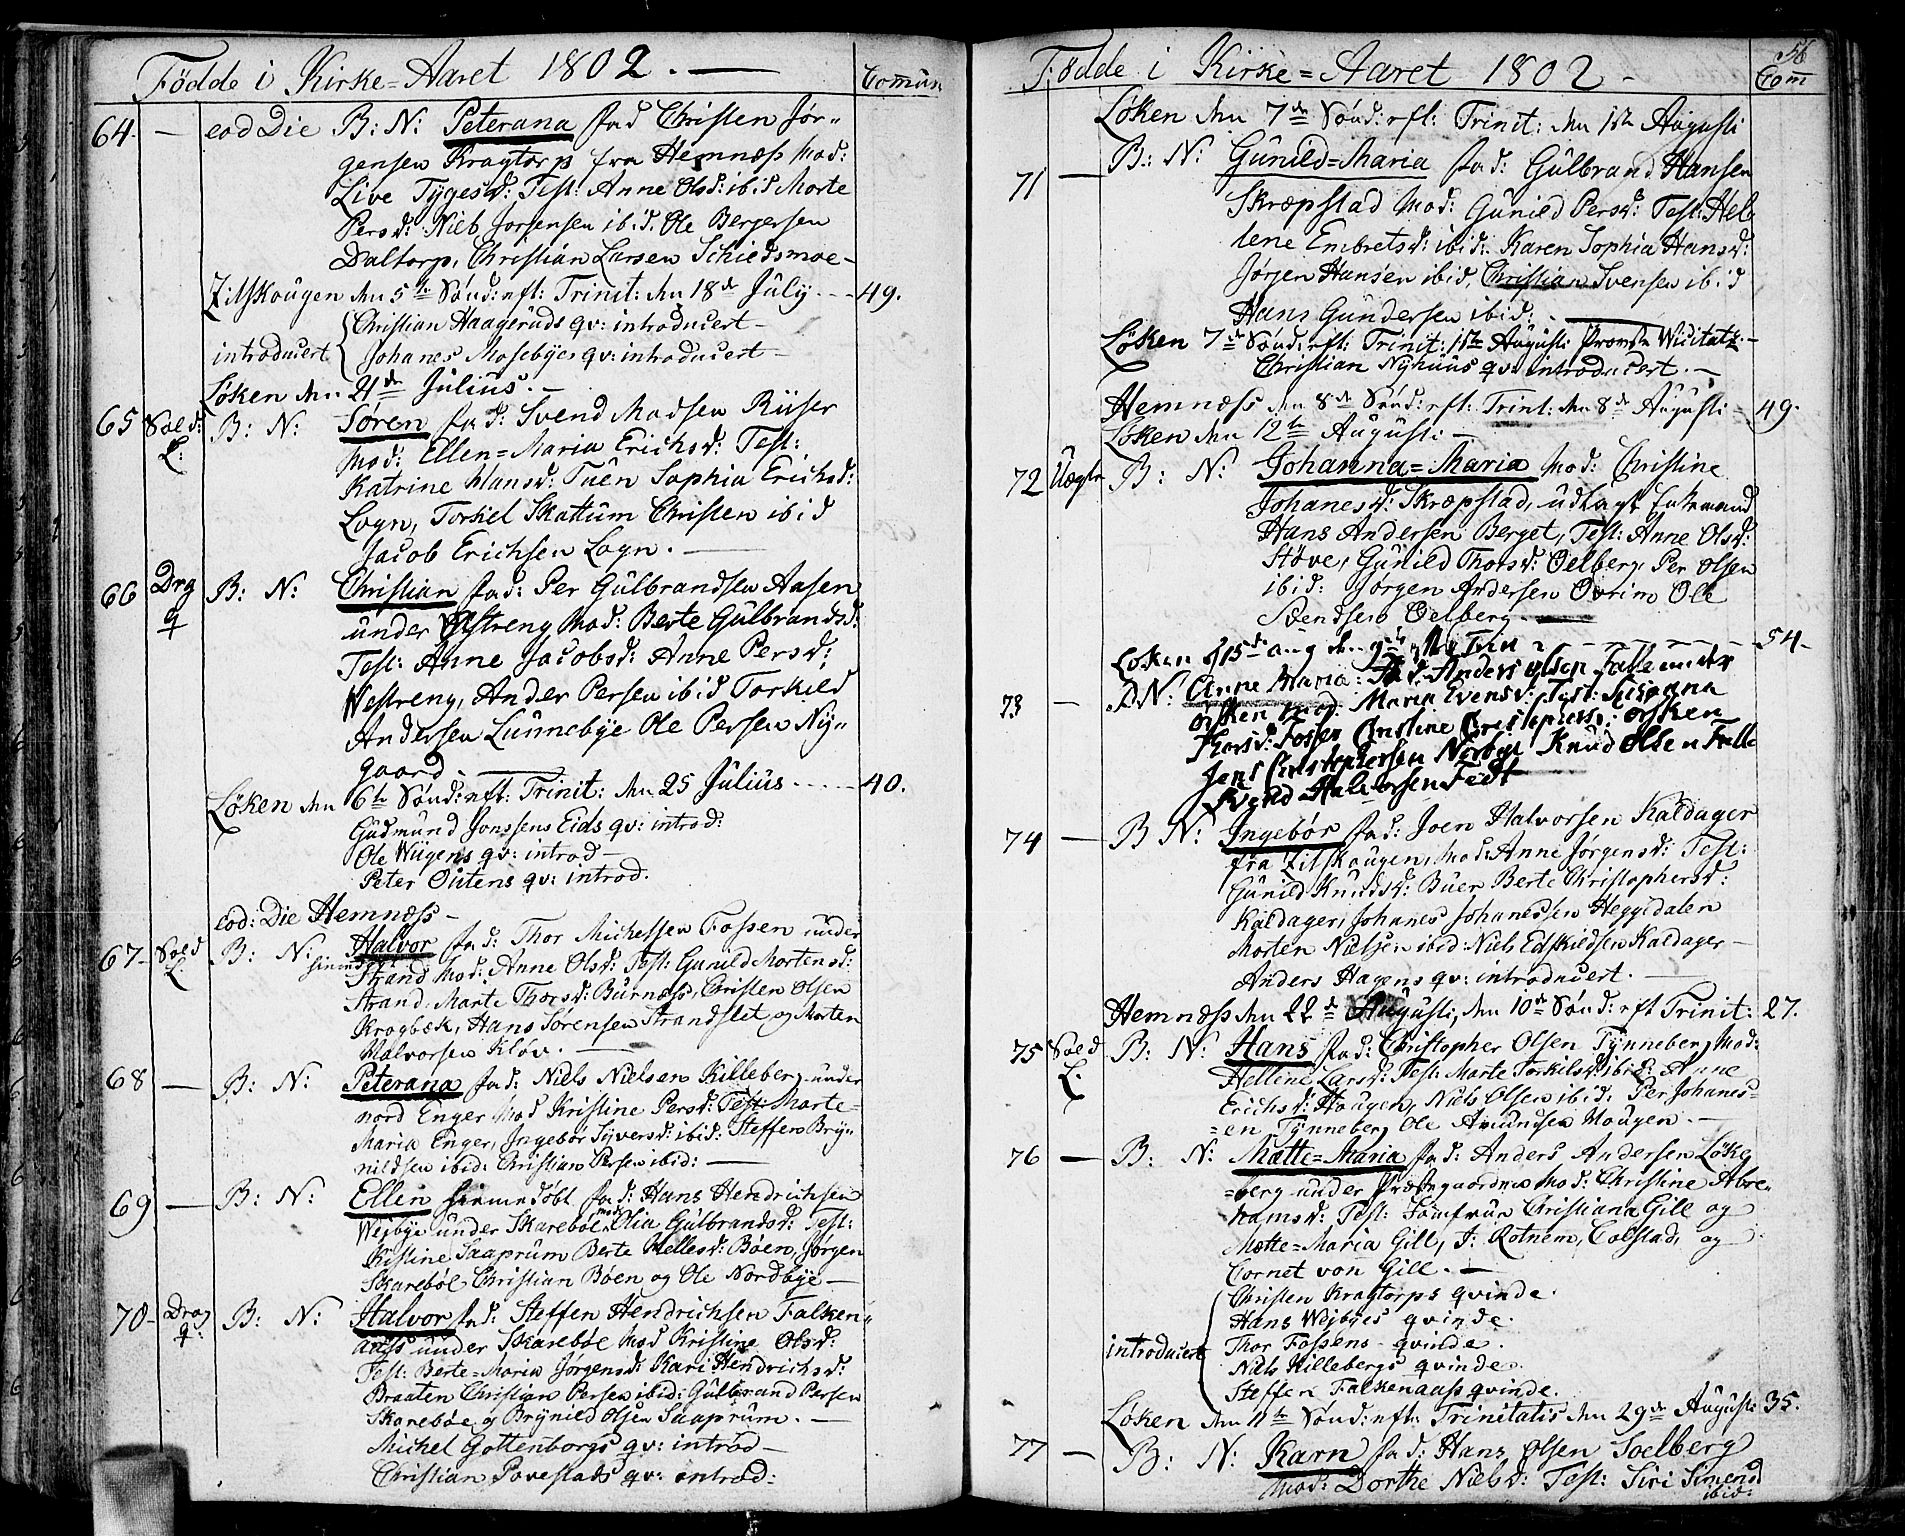 Fødde i Kirke=Aaret 1802. —
Comun
64. — eod Die B: N: Peterana fad Christen Jør=
gensen Kragtorp fra Hemnæss Mod:
Live Tygesd: Test: Anne Olsd: ibid Morte
Persd: Nieb Jorsensen ibid. Ole Bergersen
Daltorp, Christian Larsen Schiedsmoe -
Zitskougen den 5te Sønd: eft: Trinit: den 18de July - - - 49.
introducert { Christian Haagerüds qv: introducert —
Johanes Mosebyes qv: introducert —
Løken den 21de Julius. —
65 Sold: L: B: N: Søren fad: Svend Madsen Riiser
Mod: Ellen=Maria Erichsd: Test:
Katrine Hansd: Tuen Sophia Erichsd:
Logn, Torkel Skattum Christen ibid
Jacob Erichsen Logn. —
66 Drg q B: N: Christian fad: Per Gulbrandsen Aasen
under Østreng Mod: Berte Gulbrandsd:
Test: Anne Jacobsd: Anne Persd:
Westreng, Ander Persen ibid Torkild
Andersen Lunnebye Ole Persen Ny=
gaard. —
Løken den 6te Sønd: eft: Trinit: den 25 Julius - - - - 40.
Gudmund Jonssens Eids qv: introd:
Ole Wiigens qv: introd —
Peter Outens qv: introd.
eod: Die Hemnæss —
67 - Sold L: B: N: Halvor fad: Thor Michelsen Fossen under
Strand Mod: Anne Olsd: Test: Gunild Mortensd:
Strand. Marte Thorsd: Burnæss, Christen Olsen
Kragbæk, Hans Sørensen Strandslet og Morten
Halvorsen Kløv. —
68 — B: N: Peterana fad: Niels Nielsen Killeberg under
nord Enger Mod Kristine Persd: Test: Marte=
Maria Enger, Ingebor Syversd: ibid: Steffen Bry=
nildsen ibid: Christian Persen ibid: —
69 — B: N: Ellen hiemedøbt fad: Hans Hendrichsen
Wejbye under Skarebøl mod Olia Gulbrandsd: Test:
Kistine Saaprum Berte Hellesd: Bøen, Jørgen
Skarebøl Christian Bøen og Ole Nordbye —
70 - Drag q: B: N: Halvor fad: Steffen Hendrichsen Falken=
aass under Skarebøe Mod Kristine Olsd:
Test: Berte=Maria Jorgensd: Kari Hendrichsd:
Braaten Christian Persen ibid: Gulbrand Persen
Skarebøe og Brynild Olsen Saaprum. —
Michel Gottenborgs qv: introd —
Christian Povestads qv: introd:
56
Fødde i Kirke=Aaret 1802 -
Com
Løken den 7de Sønd: eft: Trinit: den 1ste Augusti
71 — B: N: Gunild=Maria fad: Gulbrand Hansen
Skræpstad Mod: Gunild Persd: Test: Hel=
lene Embretsd: ibid: Karen Sophia Hansd:
Jørgen Hansen ibid, Christian Svensen ibid
Hans Gundersen ibid: —
Løken 7de Sønd: eft: Trinit: 1ste Augusti Provste Wisitatz. —
Christian Nyhuus qv: introducert. —
Hemnæss den 8de Sønd: eft: Trinit: den 8de Augusti - 49.
Løken den 12te Augusti —
72 Uægte B: N: Johanna=Maria Mod: Christine
Johanesd: Skræpstad, udlagt Enkemand
Hans Andersen Berget, Test: Anne Olsd:
Støve, Gunild Thorsd: Oelberg, Per Olsen
ibid: Jørgen Andersen Ovrim Ole
Svendsen Oelberg —
Løken d 15de aug den 9de Trin - - - - - 54.
73 — DN: Anne Maria: Fad. Anders Olsen Falle under
ørsken Mod: Maria Evensd: Test: Susanna
Thorsd: Fossen Christine Christophersd: Ørsken
Jens Christophersen Norbye Knud Olsen Falle
Svend Halvorsen Fedt
74 — B N: Ingebør fad: Joen Halvorsen Kaldager
fra Zitskougen, Mod: Anne Jørgensd: Test:
Gunild Knudsd: Buer Berte Christophersd:
Kaldager, Johanes Johanessen Heggedalen
Morten Nielsen ibid Niels Edskildsen Kaldager —
Anders Hagens qv: introducert. —
Hemnæss den 22de Augusti, den 10de Sønd: eft Trinit: 27.
75 Sold L: B: N: Hans fad: Christopher Olsen Tynneberg Mod:
Hellene Larsd: Test: Morte Torkilsd: ibid: Anne
Erichsd: Hougen, Niels Olsen ibid: Per Johanes=
=en Tynneberg Ole Amundsen Hougen. —
76 — B: N: Mætte=Maria fad: Anders Andersen Løke
=berg under Præstegaarden Mod: Christine Abra=
hamsd: Test: Jomfrue Christiana Gill og
Mætte=Maria Gill, J: Rotnem, Colstad, og
Cornet von Gill. —
introducert { Christen Kragtorps qvinde.
Hans Wejbyes qvinde.
Thor Fossens - qvinde.
Niels Killebergs qvinde.
Steffen Falkenaass qvinde.
Løken den 11te Sønd: eft: Trinitatis den 29de Augusti 35.
77 — B: N: Karn fad: Hans Olsen Soelberg
Mod: Dorthe Nielsd: Test: Siri Simensd
ibid: